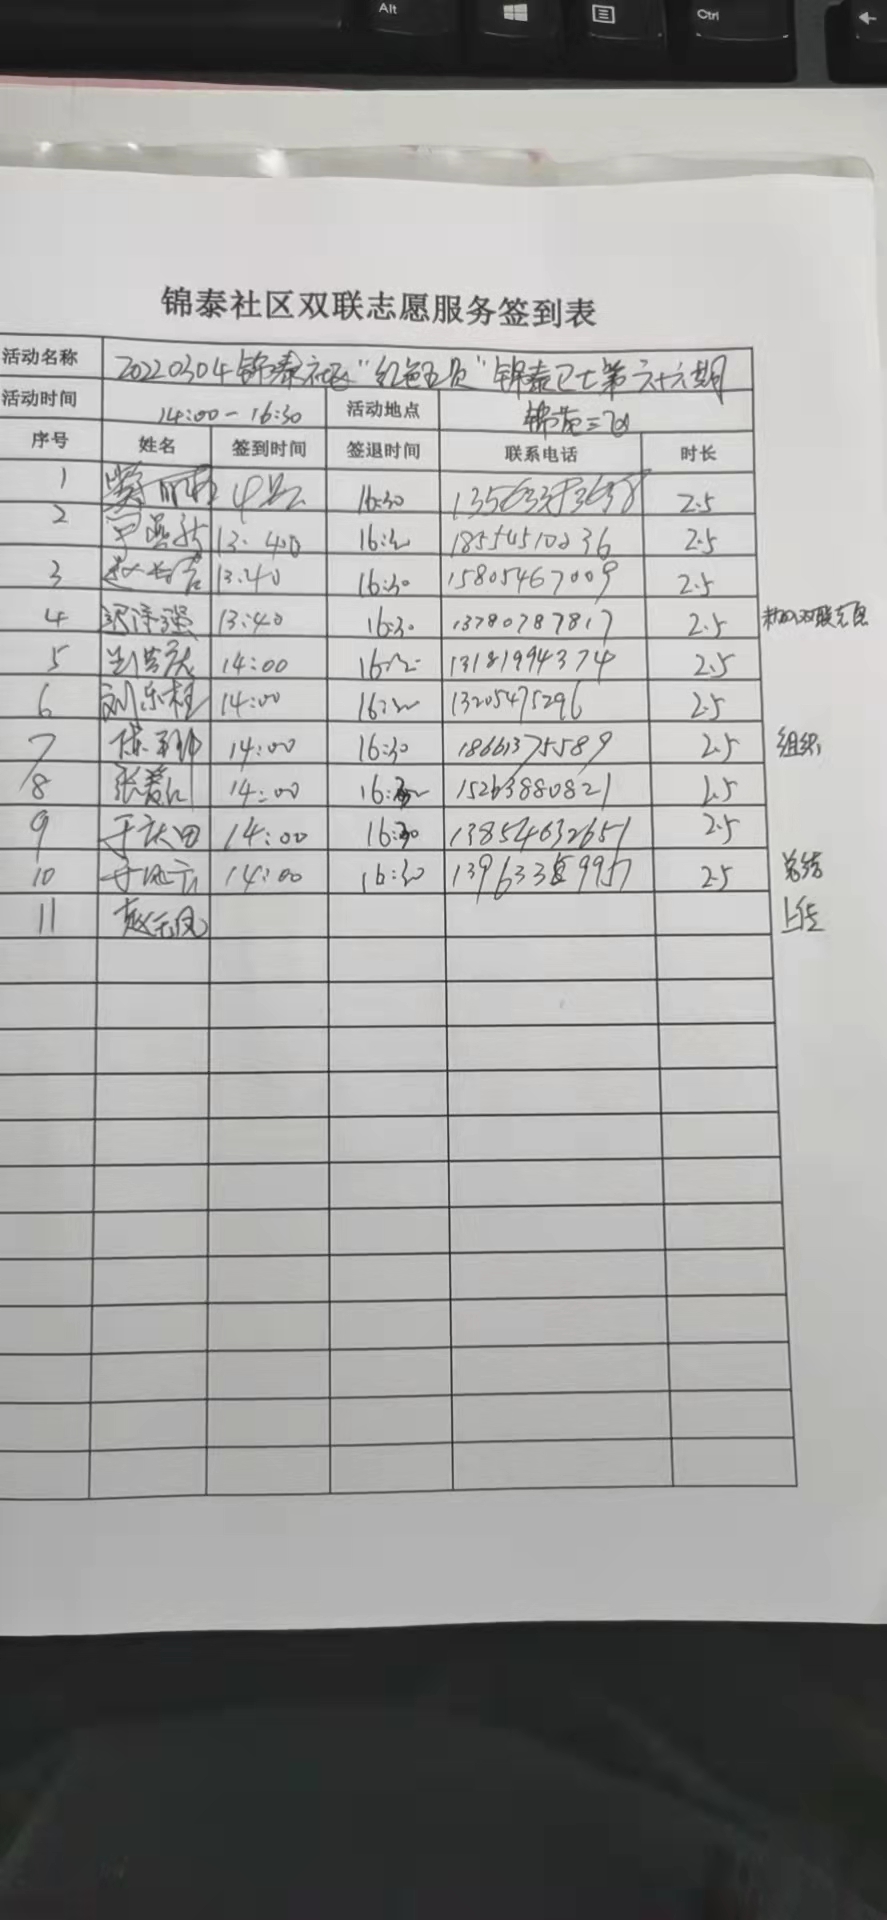 Alt
Ctrl
锦泰社区双联志愿服务签到表
活动名称 20220304锦泰社区"红色" 锦泰卫士第六十六期
活动时间 14:00-16:30 活动地点 锦苑三
序号 姓名 签到时间 签退时间 联系电话 时长
1 16:30 2.5
2 13:40 16:30 18554510236 2.5
3 13:40 16:30 15805467009 2.5
4 强 13:40 16:30 13780787817 2.5
5 14:00 16:30 13181994374 2.5
6 刘乐桂 14:00 16:30 13205475296 2.5
7 14:00 16:30 18661375589 2.5 组织
8 张 14:00 16:30 15263880821 2.5
9 于庆田 14:00 16:30 13854632651 2.5
10 于 14:00 16:30 2.5 总结
11 赵玉凤 上传